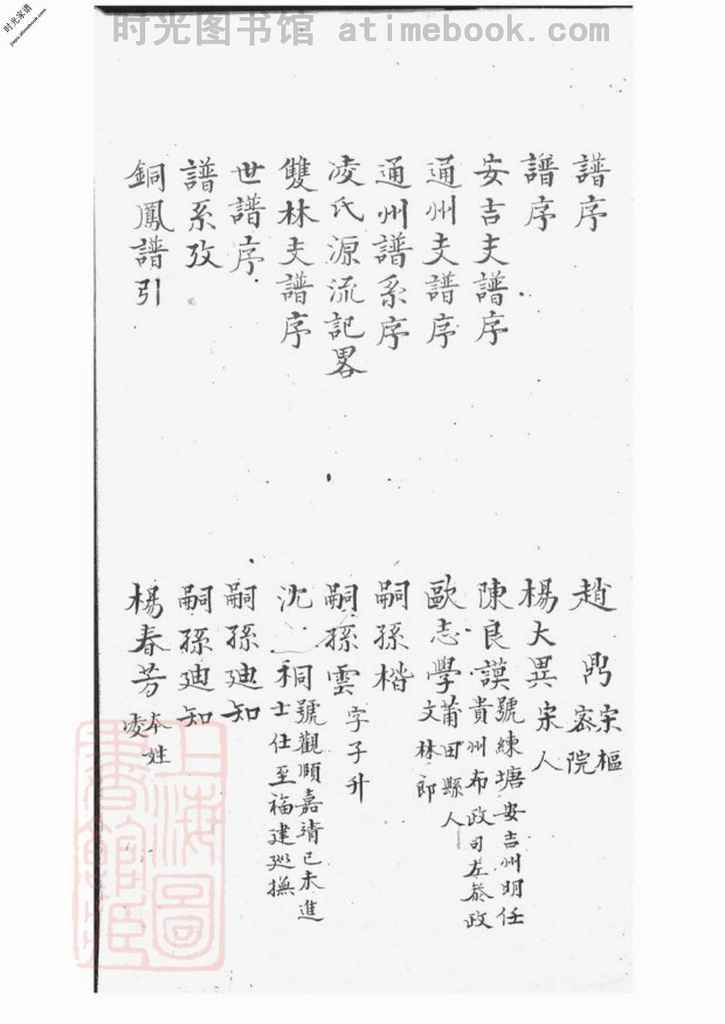 时光图书馆 atimebook.com
时光家谱
譜序 趙鼎 宋樞密院
譜序 楊大異 宋人
安吉支譜序 陳良謨 號練塘安吉州明任貴州布政司左叅政
通州支譜序 歐志學 莆田縣人文林郎
通州譜系序 嗣孫楷
凌氏源流記畧 嗣孫雲 字子升
雙林支譜序 沈 桐 號觀頤嘉靖己未進士仕至福建廵撫
世譜序 嗣孫廸知
譜系攷 嗣孫廸知
銅鳳譜引 楊春芳 本姓凌
上海圖書館藏